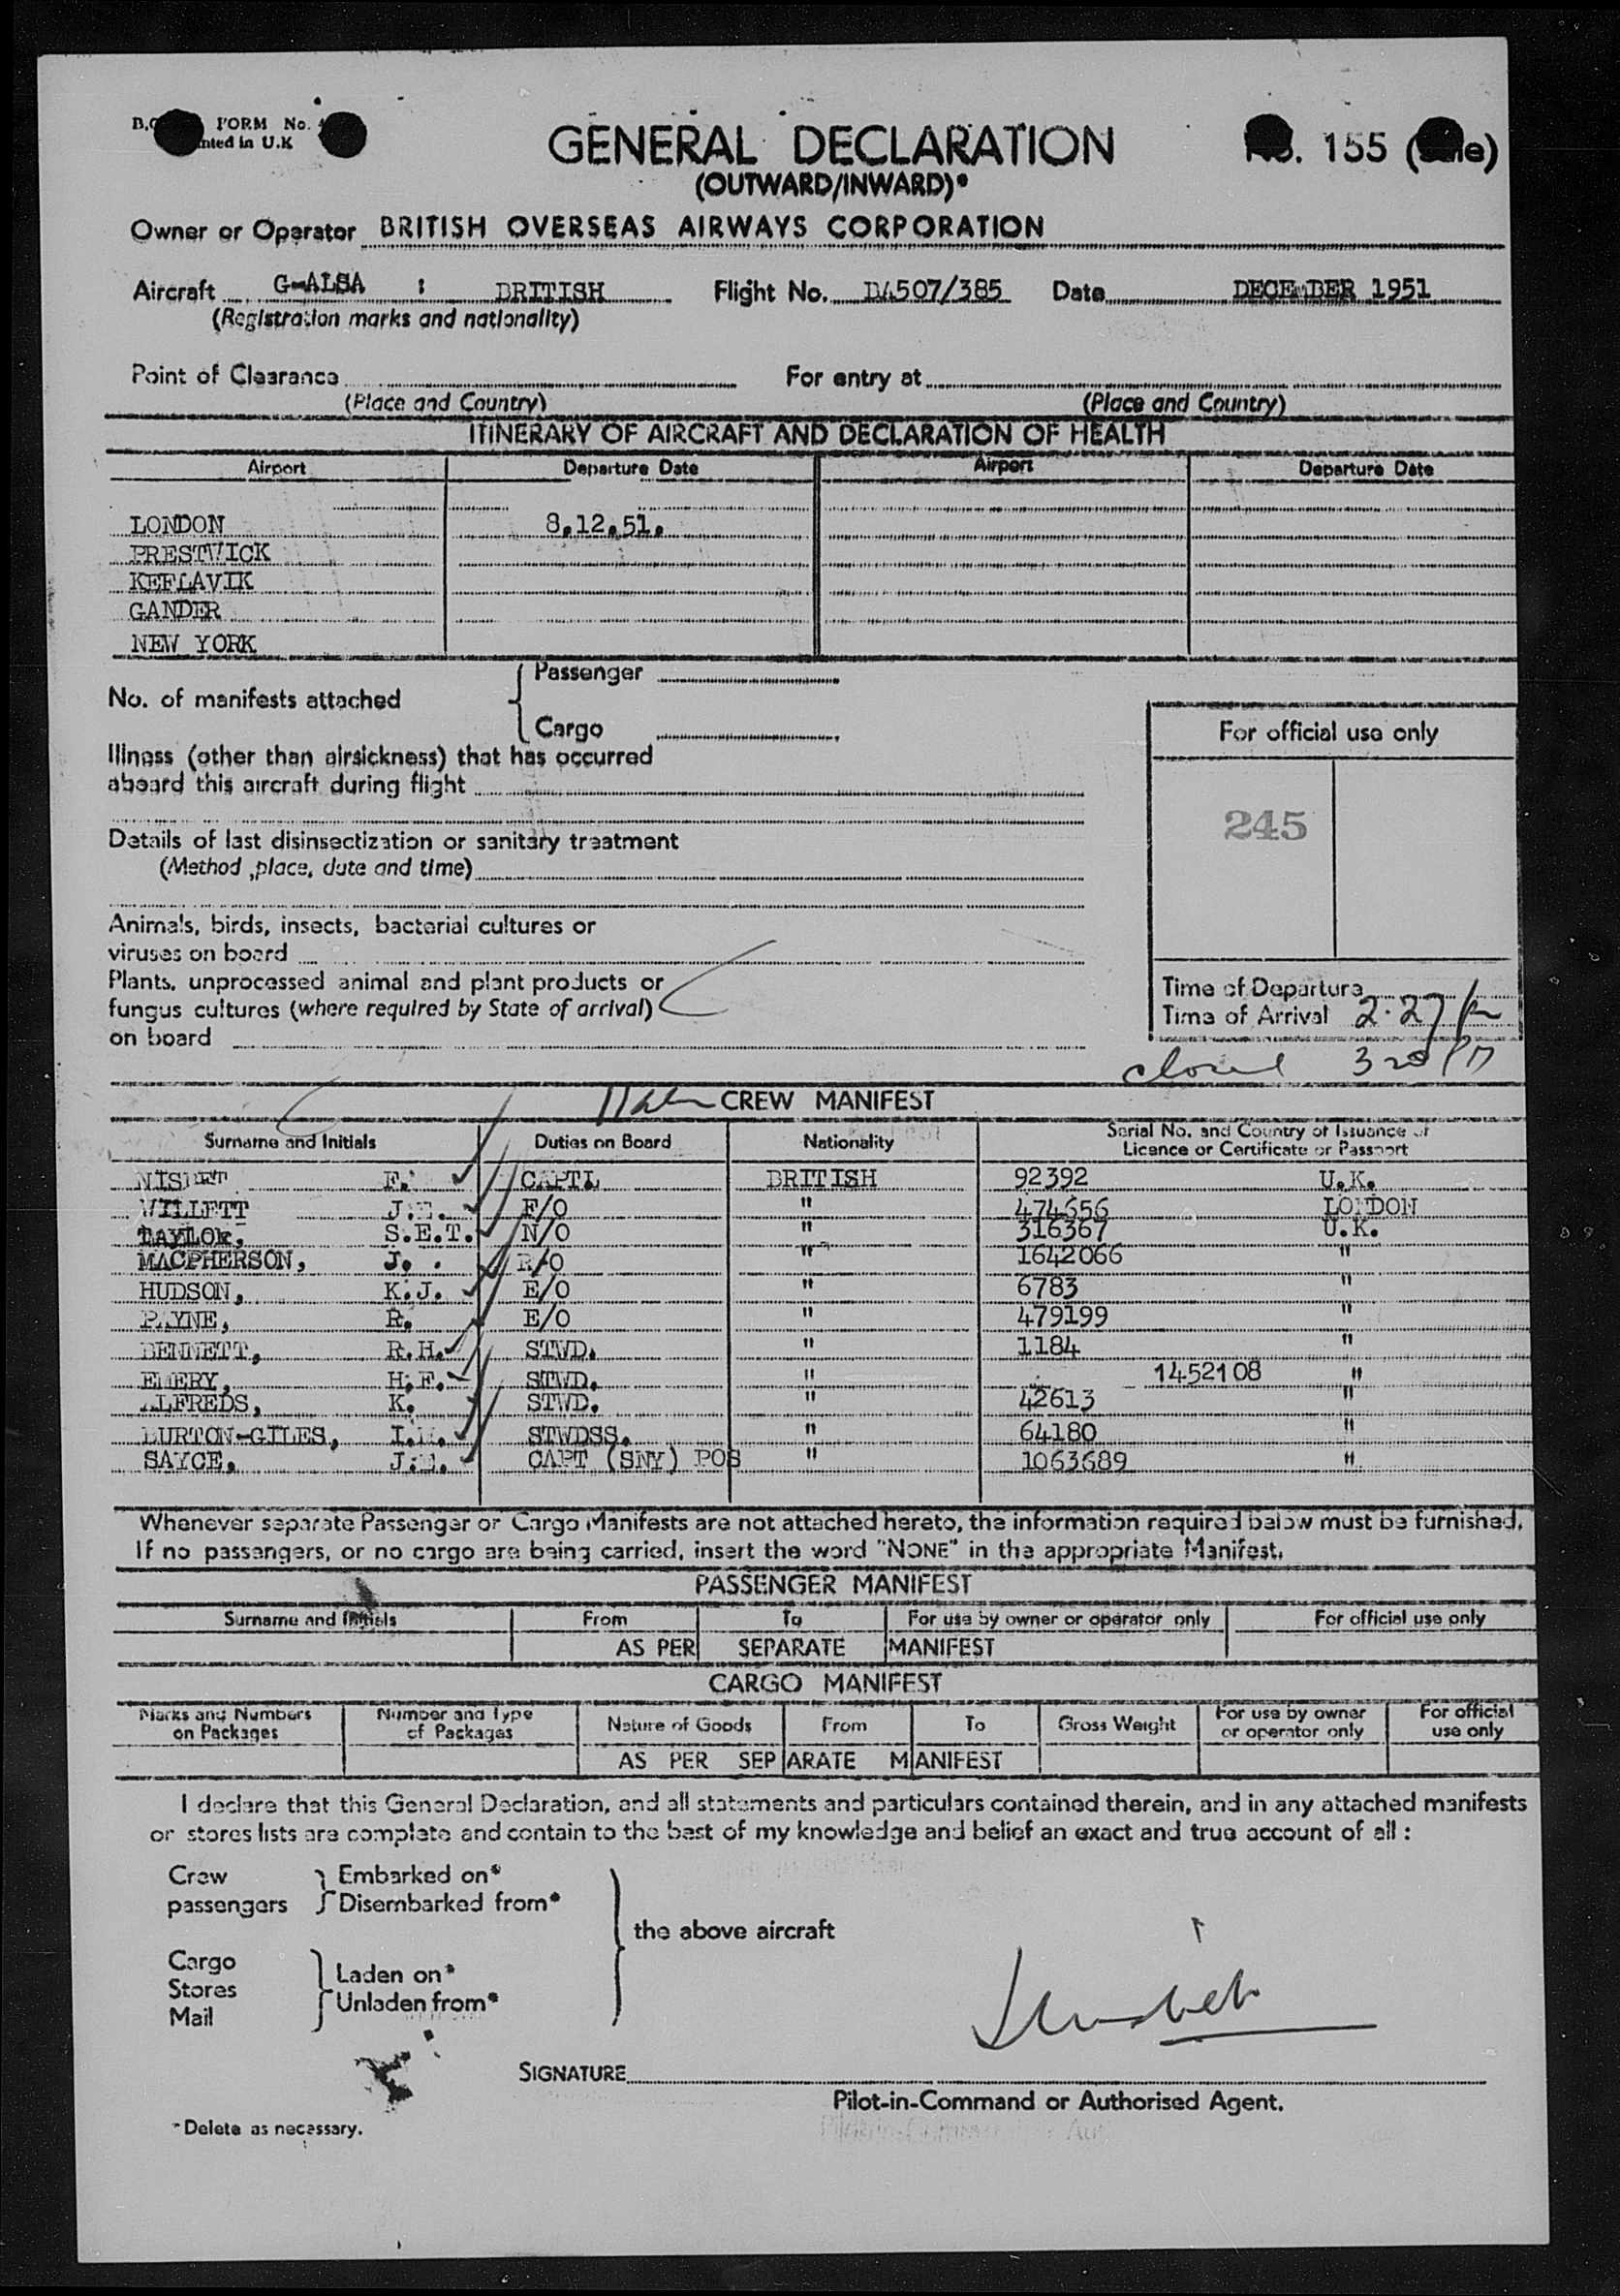 FORM No.
in U.K
GENERAL DECLARATION
155
(OUTWARD/INWARD)*
Owner or Operator BRITISH OVERSEAS AIRWAYS CORPORATION
Aircraft G-ALSA : BRITISH Flight No. BA507/385 Date DECEMBER 1951
(Registration marks and nationality)
Point of Clearance For entry at
(Place and Country) (Place and Country)
ITINERARY OF AIRCRAFT AND DECLARATION OF HEALTH
Airport Departure Date Airport Departure Date
LONDON 8.12.51.
PRESTWICK
KEFLAVIK
GANDER
NEW YORK
Passenger
No. of manifests attached
Cargo
For official use only
Illness (other than airsickness) that has occurred
aboard this aircraft during flight
245
Details of last disinsectization or sanitary treatment
(Method ,place, date and time)
Animals, birds, insects, bacterial cultures or
viruses on board
Plants, unprocessed animal and plant products or
fungus cultures (where required by State of arrival)
on board
Time of Departure
Time of Arrival 2.27
closed 3 20 PM
CREW MANIFEST
Surname and Initials Duties on Board Nationality Serial No. and Country of Issuance of
Licence or Certificate or Passport
NISBET F. CAPT BRITISH 92392 U.K.
WILLETT F/O " 474656 LONDON
TAYLOR, S.E.T. N/O " 316367 U.K.
MACPHERSON, J. R/O " 1642066 "
HUDSON, K.J. E/O " 6783 "
PAYNE, R. E/O " 479199 "
BENNETT, R.H. STWD. " 1184 "
EMERY, H.F. STWD. " 1452108 "
ALFREDS, K. STWD. " 42613 "
BURTON-GILES, STWDSS. " 64180 "
SAYCE, CAPT (SNY) POS " 1063689 "
Whenever separate Passenger or Cargo Manifests are not attached hereto, the information required below must be furnished.
If no passengers, or no cargo are being carried, insert the word "NONE" in the appropriate Manifest.
PASSENGER MANIFEST
Surname and Initials From To For use by owner or operator only For official use only
AS PER SEPARATE MANIFEST
CARGO MANIFEST
Marks and Numbers on Packages Number and Type of Packages Nature of Goods From To Gross Weight For use by owner or operator only For official use only
AS PER SEPARATE MANIFEST
I declare that this General Declaration, and all statements and particulars contained therein, and in any attached manifests
or stores lists are complete and contain to the best of my knowledge and belief an exact and true account of all :
Crew Embarked on*
passengers Disembarked from*
the above aircraft
Cargo
Stores Laden on*
Mail Unladen from*
SIGNATURE
Pilot-in-Command or Authorised Agent.
*Delete as necessary.